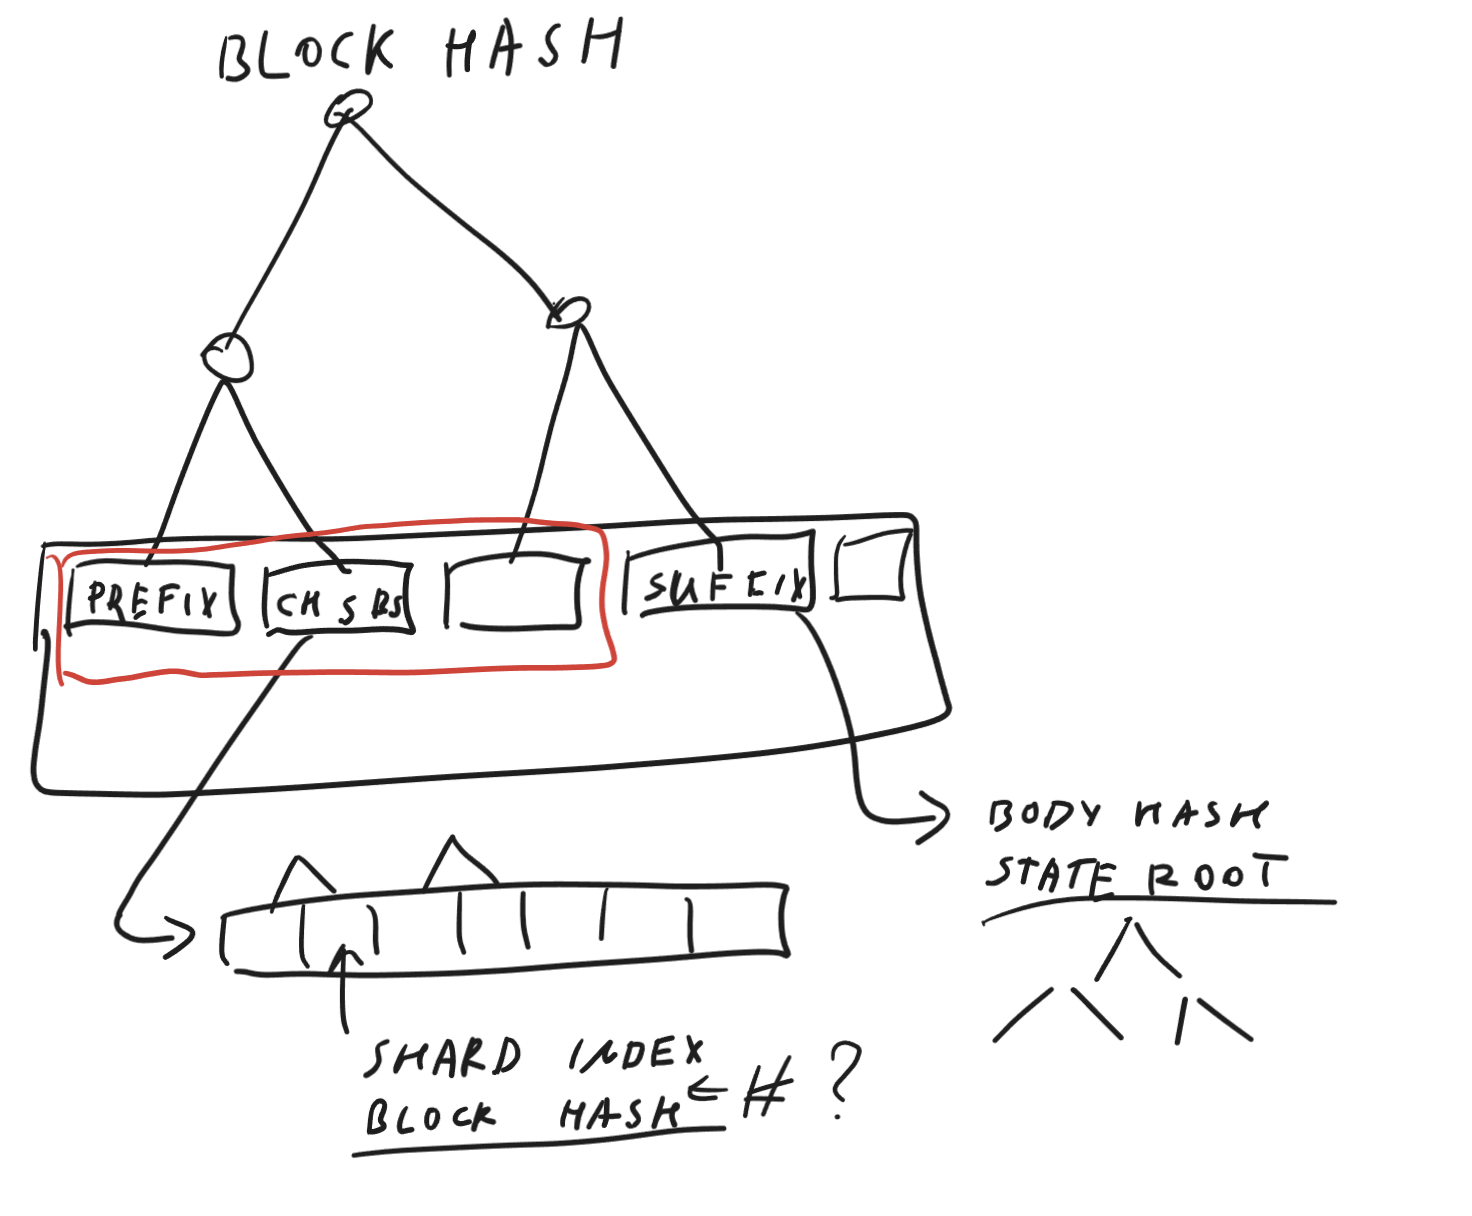 BLOCK HASH
PREFIX
CH S BS
SUFFIX
BODY HASH
STATE ROOT
SHARD INDEX
BLOCK HASH ← # ?